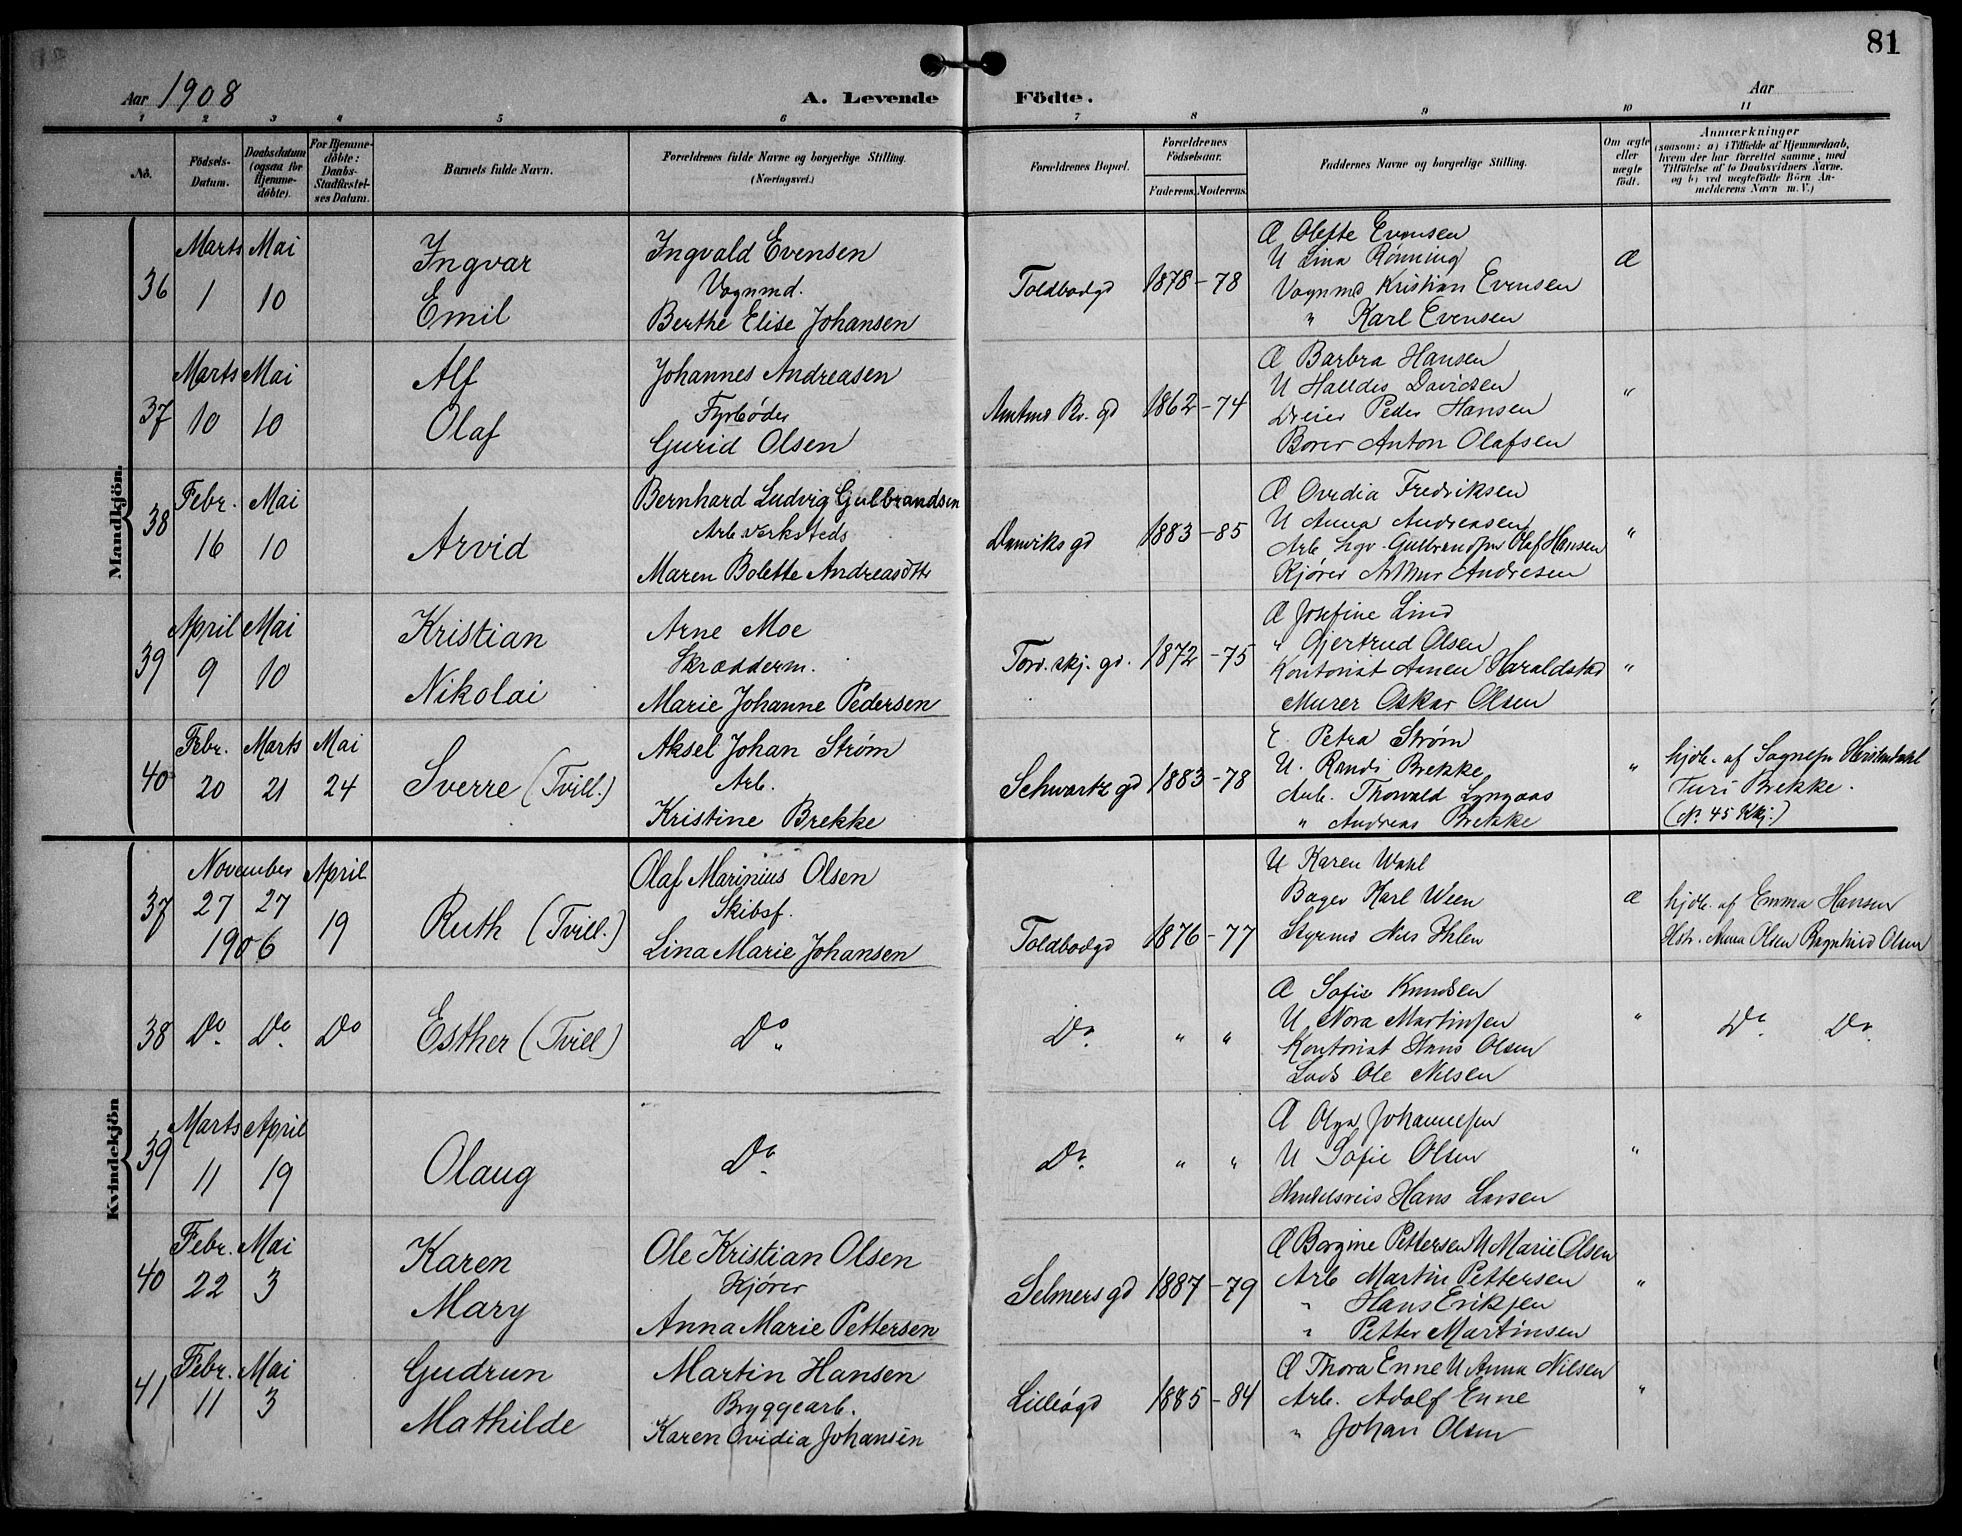 81
Aar 1908
A. Levende Födte.
Aar
1 2 3 4 5 6 7 8 9 10 11
No.
Födsels-Datum.
Daabsdatum (ogsaa for Hjemme-döbte).
For Hjemme-döbte: Daabs-Stadfæstel-ses Datum.
Barnets fulde Navn.
Forældrenes fulde Navne og borgerlige Stilling.
(Næringsvei.)
Forældrenes Bopæl.
Forældrenes Födselsaar.
Faderens. Moderens.
Faddernes Navne og borgerlige Stilling.
Om ægte eller uægte födt.
Anmærkninger
(saasom: a) i Tilfælde af Hjemmedaab, hvem der har forrettet samme, med Tilföielse af to Daabsvidners Navne, og b) ved uægtefödte Börn Anmelderens Navn m. V.)
Mandkjön.
36 Marts 1 Mai 10
Ingvar
Emil
Ingvald Evensen
Vognmd.
Berthe Elise Johansen
Toldbodgd 1878-78
Æ Olefte Evensen
U Lina Rønning
Vognmd Kristian Evensen
" Karl Evensen
Æ
37 Marts 10 Mai 10
Alf
Olaf
Johannes Andreasen
Fyrbøder
Gurid Olsen
Amtmd Bl. gd 1862-74
Æ Barbra Hansen
U Halldis Davidsen
Dreier Peder Hansen
Borer Anton Olafsen
"
38 Febr. 16 Mai 10
Arvid
Bernhard Ludvig Gulbrandsen
Arb. verksteds
Maren Bolette Andreasdttr
Danviksgd 1883-85
Æ Ovidia Fredriksen
U Anna Andreasen
Arb. Olaf Hansen
Kjører Arthur Andresen
"
39 April 9 Mai 10
Kristian
Nikolai
Arne Moe
Skrædderm.
Marie Johanne Pedersen
Tord. skj. gd. 1872-75
Æ Josefine Lind
" Gjertrud Olsen
Kontorist Haraldstad
Murer Oskar Olsen
"
40 Febr. 20 Marts 21 Mai 24
Sverre (Tvill.)
Aksel Johan Strøm
Arb.
Kristine Brekke
Schwartz gd 1883-78
E. Petra Strøm
U. Randi Brekke
Arb. Thorvald Lyngaas
" Andreas Brekke
"
hjdb. af
Turi Brekke.
(N. 45 Kkj.)
Kvindekjön
37 November 27 27 1906 April 19
Ruth (Tvill.)
Olaf Marinius Olsen
Skibsf.
Lina Marie Johansen
Toldbodgd 1876-77
U Karen Wahl
Bager Karl Ween
Styrmd Nils Ihlen
Æ
hjdb. af Emma Hansen
Hstr. Anna Olsen Ragnhild Olsen
38 Do Do. Do
Esther (Tvill)
Do "
Do. " "
Æ Sofie Knudsen
U Nora Martinsen
Kontorist Hans Olsen
Lods Ole Nilsen
"
Do Do.
39 Marts 11 April 19
Olaug
Do.
Do. " "
Æ Olga Johannesen
U Sofie Olsen
Handelsreis Hans Larsen
"
40 Febr. 22 Mai 3
Karen
Mary
Ole Kristian Olsen
Kjører
Anna Marie Pettersen
Selmersgd 1887-79
Æ Borgine Pettersen U Marie Olsen
Arb Martin Pettersen
" Hans Eriksen
" Petter Martinsen
"
41 Febr. 11 Mai 3
Gudrun
Mathilde
Martin Hansen
Bryggearb.
Karen Ovidia Johansen
Lilleøgd 1885-84
Æ Thora Enne U Anna Nilsen
Arb. Adolf Enne
" Johan Olsen
"